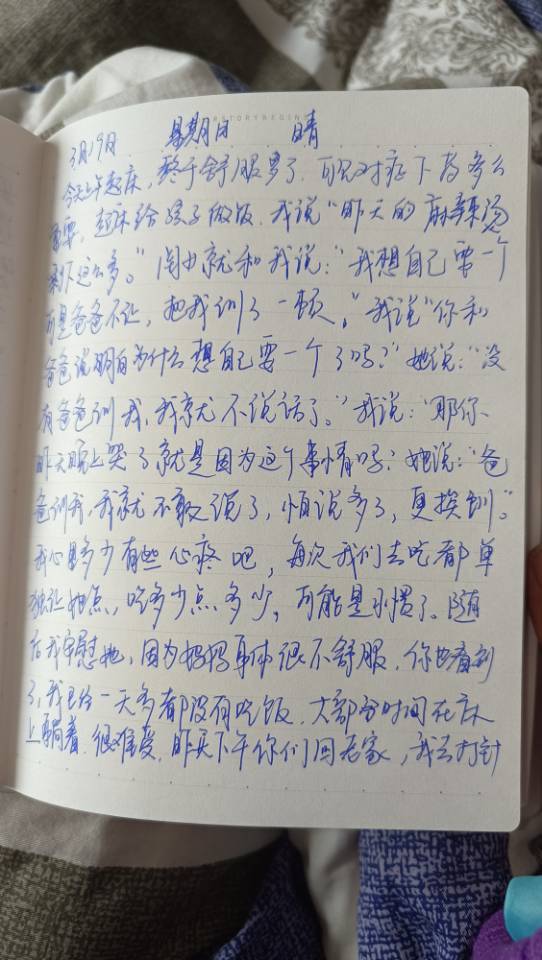 STORYBEGIN
3月19日 星期日 晴
今天上午起床，终于舒服多了，可见对症下药多么
重要，起床给孩子做饭，我说“昨天的麻辣烫
剩下这么多。”闺女就和我说：“我想自己要一个
可是爸爸不让，把我训了一顿，”我说“你和
爸爸说明白为什么想自己要一个了吗？”她说：“没
有爸爸训我，我就不说话了。”我说：“那你
昨天晚上哭了就是因为这个事情吗？她说：“爸
爸训我，我就不敢说了，怕说多了，更挨训。”
我心里多少有些心疼吧，每次我们去吃都单
独让她点，吃多少点多少，可能是习惯了。随
后我安慰她，因为妈妈身体很不舒服，你也看到
了，我已给一天多都没有吃饭，大部分时间在床
上躺着，很难受，昨天下午你们回老家，我去打针